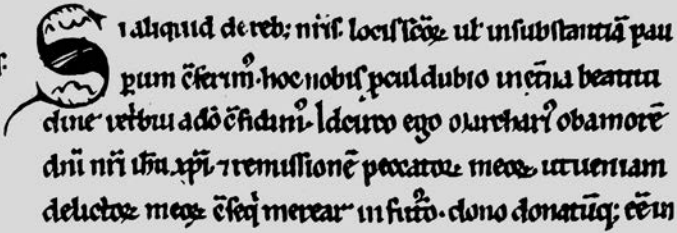 Si aliquid de reb; nr̄is locis scōꝝ ul̓ in substantiā pau
ꝑum c̄ferim᷒ hoc nobis ꝓcul dubio in et̄na beatitu
dine retribui ad̄o c̄fidim᷒. Idcirco ego Murchart᷒ ob amorē
dn̄i nr̄i ih̄u xp̄i ⁊ remissionē peccatoꝝ meoꝝ ut ueniam
delictoꝝ meoꝝ c̄seq̄ merear in fut̓o. dono donatūq; eē in